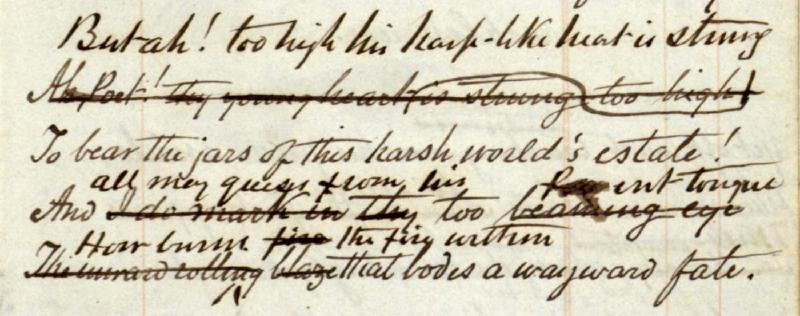 But ah! too high his harp-like heart is strung
Ah Poet! thy young heart is strung too high
To bear the jars of this harsh world's estate!
all may guess from his fervent tongue
And I do mark in thy too beaming eye
How burns fire the fire within
The inward blaze that bodes a wayward fate.